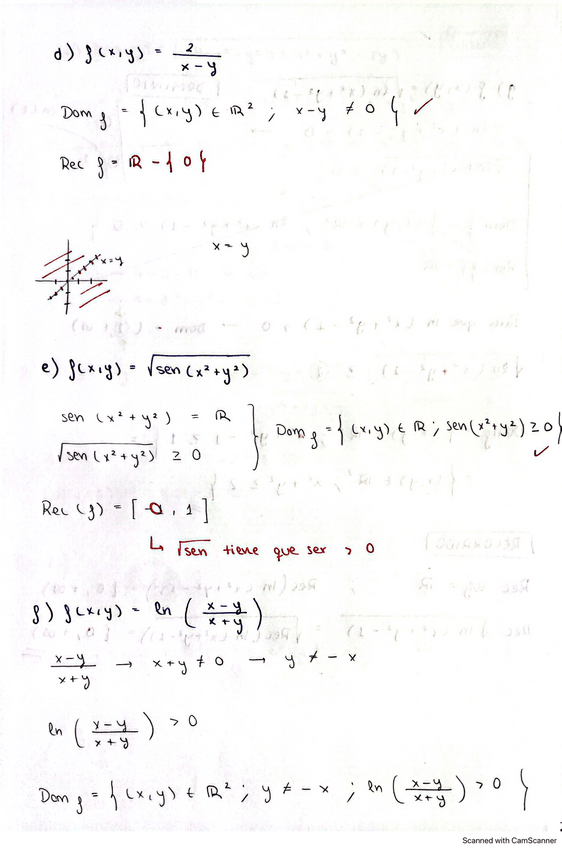 d) f(x,y) = 2/(x-y)
Dom f = { (x,y) ∈ ℝ² ; x-y ≠ 0 } ✓
Rec f = ℝ - { 0 }
x = y
x=y
e) f(x,y) = √(sen (x²+y²))
sen (x²+y²) = ℝ
√(sen (x²+y²)) ≥ 0
Dom f = { (x,y) ∈ ℝ ; sen(x²+y²) ≥ 0 } ✓
Rec (f) = [ 0 , 1 ]
↳ √sen tiene que ser > 0
f) f(x,y) = ln ( (x-y)/(x+y) )
(x-y)/(x+y) → x+y ≠ 0 → y ≠ -x
ln ( (x-y)/(x+y) ) > 0
Dom f = { (x,y) ∈ ℝ² ; y ≠ -x ; ln ( (x-y)/(x+y) ) > 0 }
Scanned with CamScanner